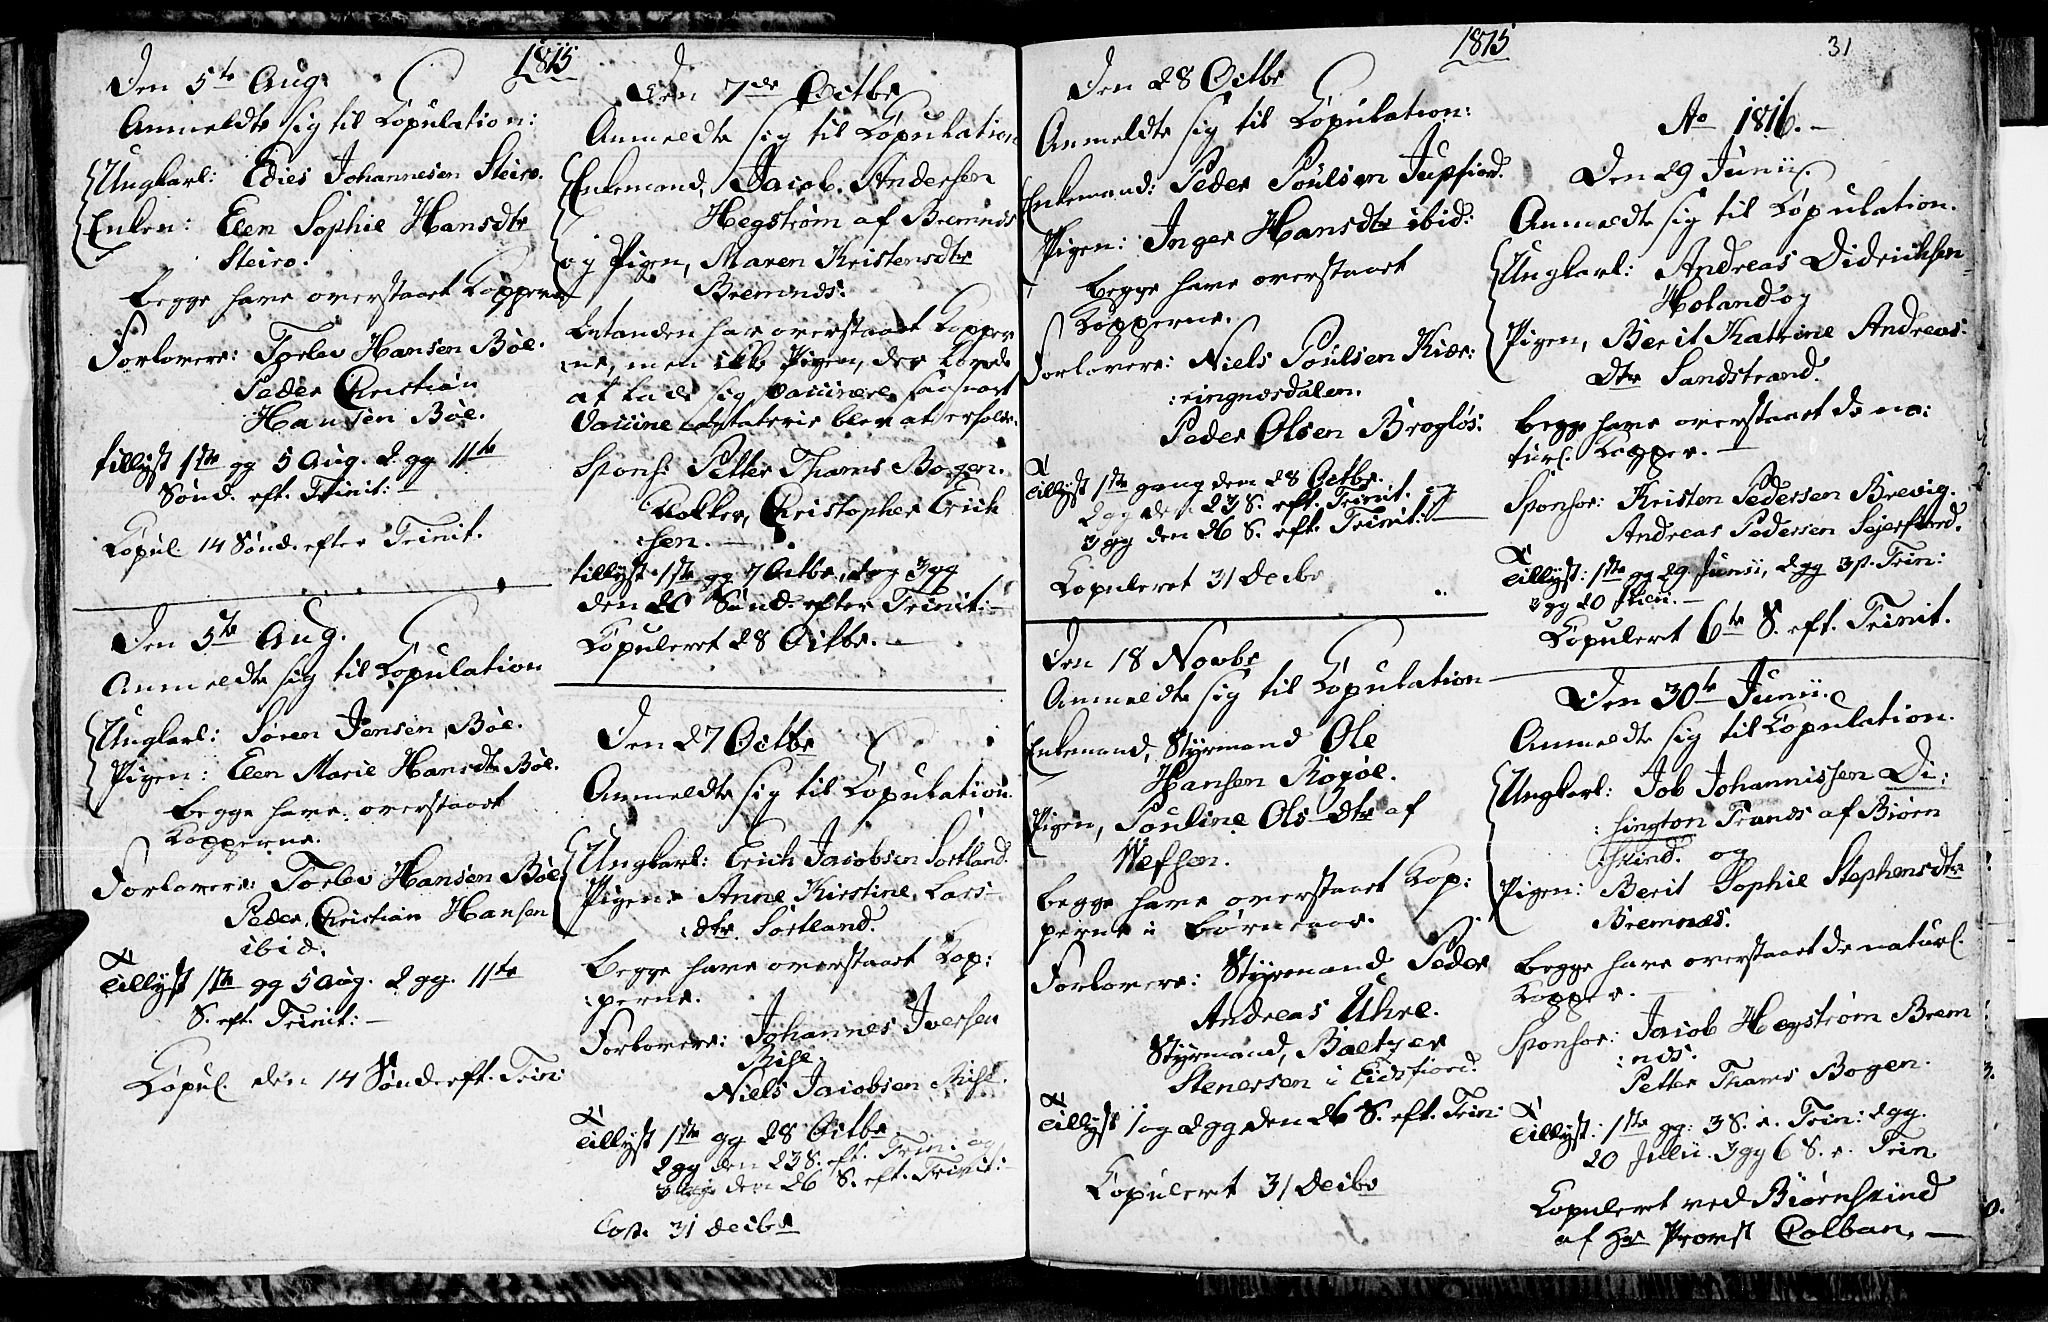 1815
Den 5te Aug.
Anmeldte sig til Copulation:
Ungkarl: Edies Johannesen Steiro.
Enken: Elen Sophie Hansdtr
Steiro.
Begge have overstaaet Kopperne
Forlovere: Torlev Hansen Böe.
Peder Christian
Hansen Böe.
tillyst 1ste gg 5 Aug. 2 gg 11te
Sönd. eft. Trinit: —
Copul. 14 Sönd. efter Trinit.
Den 5te Aug.
Anmeldte sig til Copulation
Ungkarl: Sören Jensen, Böe.
Pigen: Elen Marie Hansdtr Böe.
begge have overstaaet
Kopperne.
Forlovere: Torlev Hansen Böe
Peder Christian Hansen
ibid.
Tillyst 1ste gg 5 Aug. 2 gg. 11te
S. eft. Trinit: —
Copul. den 14 Sönd eft. Trin:
Den 7de Octbr
Anmeldte sig til Copulation
Enkemand, Jacob Andersen
Hegström af Bremnds
og Pigen, Maren Kristensdtr
Bremnds:
have overstaaet Kopper
ne, men ikke Pigen, der lovede
at lade sig vaccinere saasnart
Vaccine blev at erholde.
Spons: Petter Thams Bogen.
Christopher Erich
:sen. —
tillyst 1ste gg 7 Octbr, 2 og 3 gg
den 20 Sönd. efter Trinit: —
Copuleret 28 Octbr. —
Den 27 Octbr
Anmeldte sig til Copulation.
Ungkarl: Erich Jacobsen Sortland.
Pigen: Anne Kirstine Lars-
:dtr Sortland.
begge have overstaaet Kop:
:perne.
Forlovere: Johannes Iversen
Niels Jacobsen
Tillyst 1ste gg 28 Octbr
2 gg den 23 S. eft. Trin. og
3 gg. den 26 S. eft. Trinit: —
Cop. 31 Decbr
1815
31
Den 28 Octbr
Anmeldte sig til Copulation:
Enkemand: Peder Poulsen Jupfiord.
Pigen: Inger Hansdtr ibid:
begge have overstaaet
Kopperne.
Forlovere: Niels Poulsen Kier:
:ringnesdalen.
Peder Olsen Brogløs:
Tillyst 1ste gang den 28 Octbr.
2 gg den 23 S. eft. Trinit. og
3 gg den 26 S. eft. Trinit: —
Copuleret 31 Decbr
Den 18 Novbr
Anmeldte sig til Copulation
Enkemand, Styrmand Ole
Hansen Rogöe.
Pigen, Pouline Ols-Dtr af
Wefsen.
begge have overstaaet Kop:
perne i Börneaar.
Forlovere: Styrmand Peder
Andreas Uhre.
Styrmand, Baltzer
Stenersen i Eidsfiord.
Tillyst 1 og 2 gg den 26 S. eft. Trin:
Copuleret 31 Decbr
Ao 1816. —
Den 29 Junii.
Anmeldte sig til Copulation.
Ungkarl: Andreas Didrichsen
Holand og
Pigen, Berit Katrine Andreas:
Dtr Sandstrand.
begge have overstaaet de na:
turl. Kopper. —
Sponsor: Kristen Pedersen Brevig.
Andreas Pedersen Sejerfiord.
Tillyst: 1ste gg 29 Junii, 2 gg 3 p. Trin:
3 gg 20 Julii. —
Copulert 6te S. eft. Trinit.
Den 30te Junii.
Anmeldte sig til Copulation.
Ungkarl: Job Johannissen Di:
:hington Trands af Biörn
:skind. og
Pigen: Berit Sophie Stephensdtr
Bremnæs.
begge have overstaaet de naturl.
Kopper. —
Sponsor: Jacob Hegström Brem
:nds.
Petter Thams Bogen.
Tillyst: 1ste gg: 3 S. e. Trin: 2 gg.
20 Julii. 3 gg 6 S. e. Trin
Copuleret ved Biörnskind
af Hr Provst Colban. —